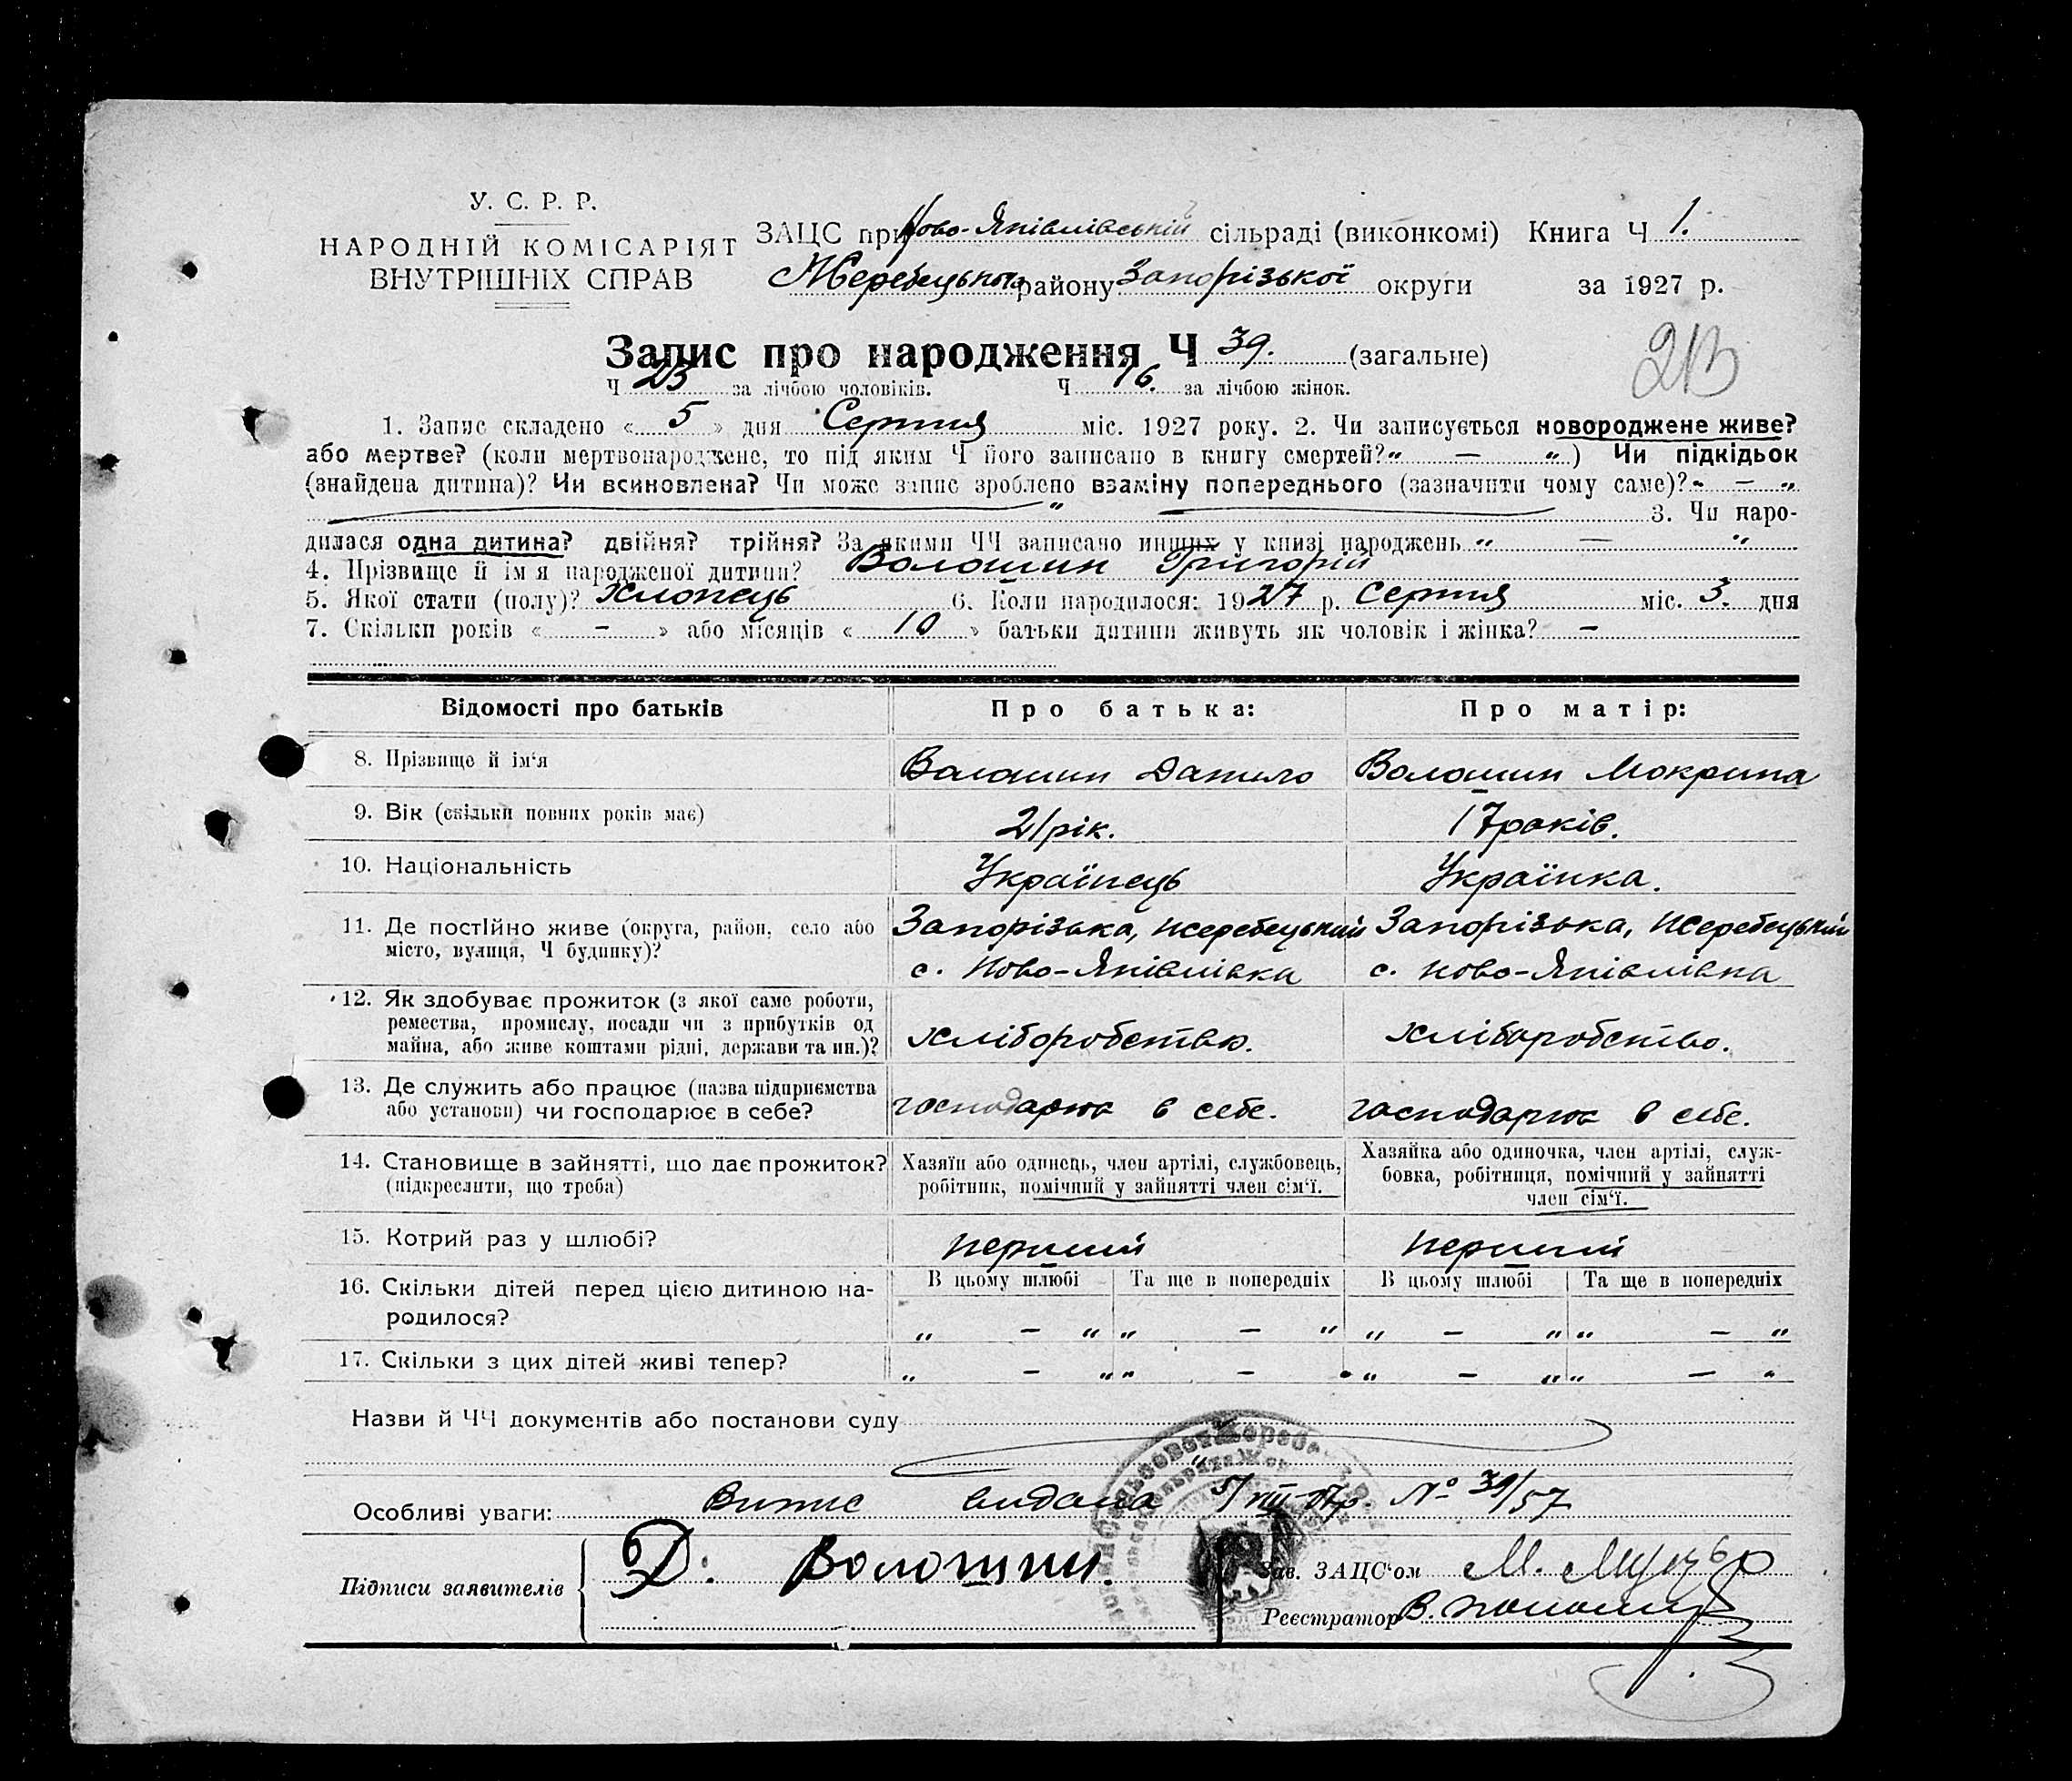 У. С. Р. Р.
НАРОДНІЙ КОМІСАРІЯТ
ВНУТРІШНІХ СПРАВ
ЗАЦС при Ново-Яківлівській сільраді (виконкомі) Книга Ч 1.
Жеребецького району Запорізької округи за 1927 р.
Запис про народження Ч 39. (загальне)
Ч 23 за лічбою чоловіків. Ч 16. за лічбою жінок.
1. Запис складено « 5 » дня Серпня міс. 1927 року. 2. Чи записується новороджене живе?
або мертве? (коли мертвонароджене, то під яким Ч його записано в книгу смертей? „ — “) Чи підкідьок
(знайдена дитина)? Чи всиновлена? Чи може запис зроблено взаміну попереднього (зазначити чому саме)? „ — „
„ 3. Чи наро-
дилася одна дитина? двійня? трійня? За якими ЧЧ записано инших у книзі народжень „ — "
4. Прізвище й ім'я народженої дитини? Волошин Григорій
5. Якої стати (полу)? Хлопець 6. Коли народилося: 1927 р. Серпня міс. 3. дня
7. Скільки років « - » або місяців « 10 » батьки дитини живуть як чоловік і жінка? —
Відомості про батьків Про батька: Про матір:
8. Прізвище й ім'я Волошин Данило Волошин Мокрина
9. Вік (скільки повних років має) 21 рік. 17 років.
10. Національність Українець Українка.
11. Де постійно живе (округа, район, село або Запорізька, Жеребецький Запорізька, Жеребецький
місто, вулиця, Ч будинку)? с. Ново-Яківлівка с. Ново-Яківлівка
12. Як здобуває прожиток (з якої саме роботи,
ремества, промислу, посади чи з прибутків од хліборобство. хліборобство.
майна, або живе коштами рідні, держави та ин.)?
13. Де служить або працює (назва підприємства
або установи) чи господарює в себе? господарює в себе. господарює в себе.
14. Становище в зайнятті, що дає прожиток? Хазяїн або одинець, член артілі, службовець, Хазяйка або одиночка, член артілі, служ-
(підкреслити, що треба) робітник, помічний у зайнятті член сім'ї. бовка, робітниця, помічний у зайнятті
член сім'ї.
15. Котрий раз у шлюбі? перший перший
16. Скільки дітей перед цією дитиною на- В цьому шлюбі Та ще в попередніх В цьому шлюбі Та ще в попередніх
родилося? „ — “ „ — “ „ — “ „ — “
17. Скільки з цих дітей живі тепер? „ — “ „ — “ „ — “ „ — “
Назви й ЧЧ документів або постанови суду
Особливі уваги: Випис видана 5/VIII-27р. № 39/57
Підписи заявителів Д. Волошин. Зав. ЗАЦС'ом М.
Реєстратор В.